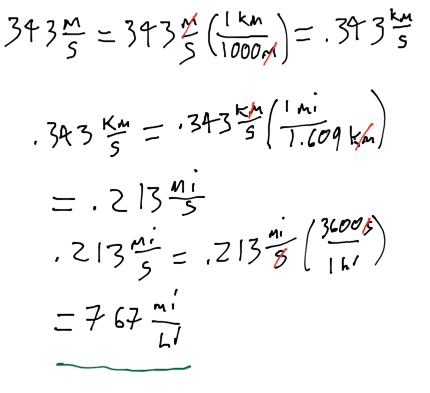 343 m/s = 343 m/s (1 km/1000 m) = .343 km/s
.343 km/s = .343 km/s (1 mi/1.609 km)
= .213 mi/s
.213 mi/s = .213 mi/s (3600 s/1 hr)
= 767 mi/hr